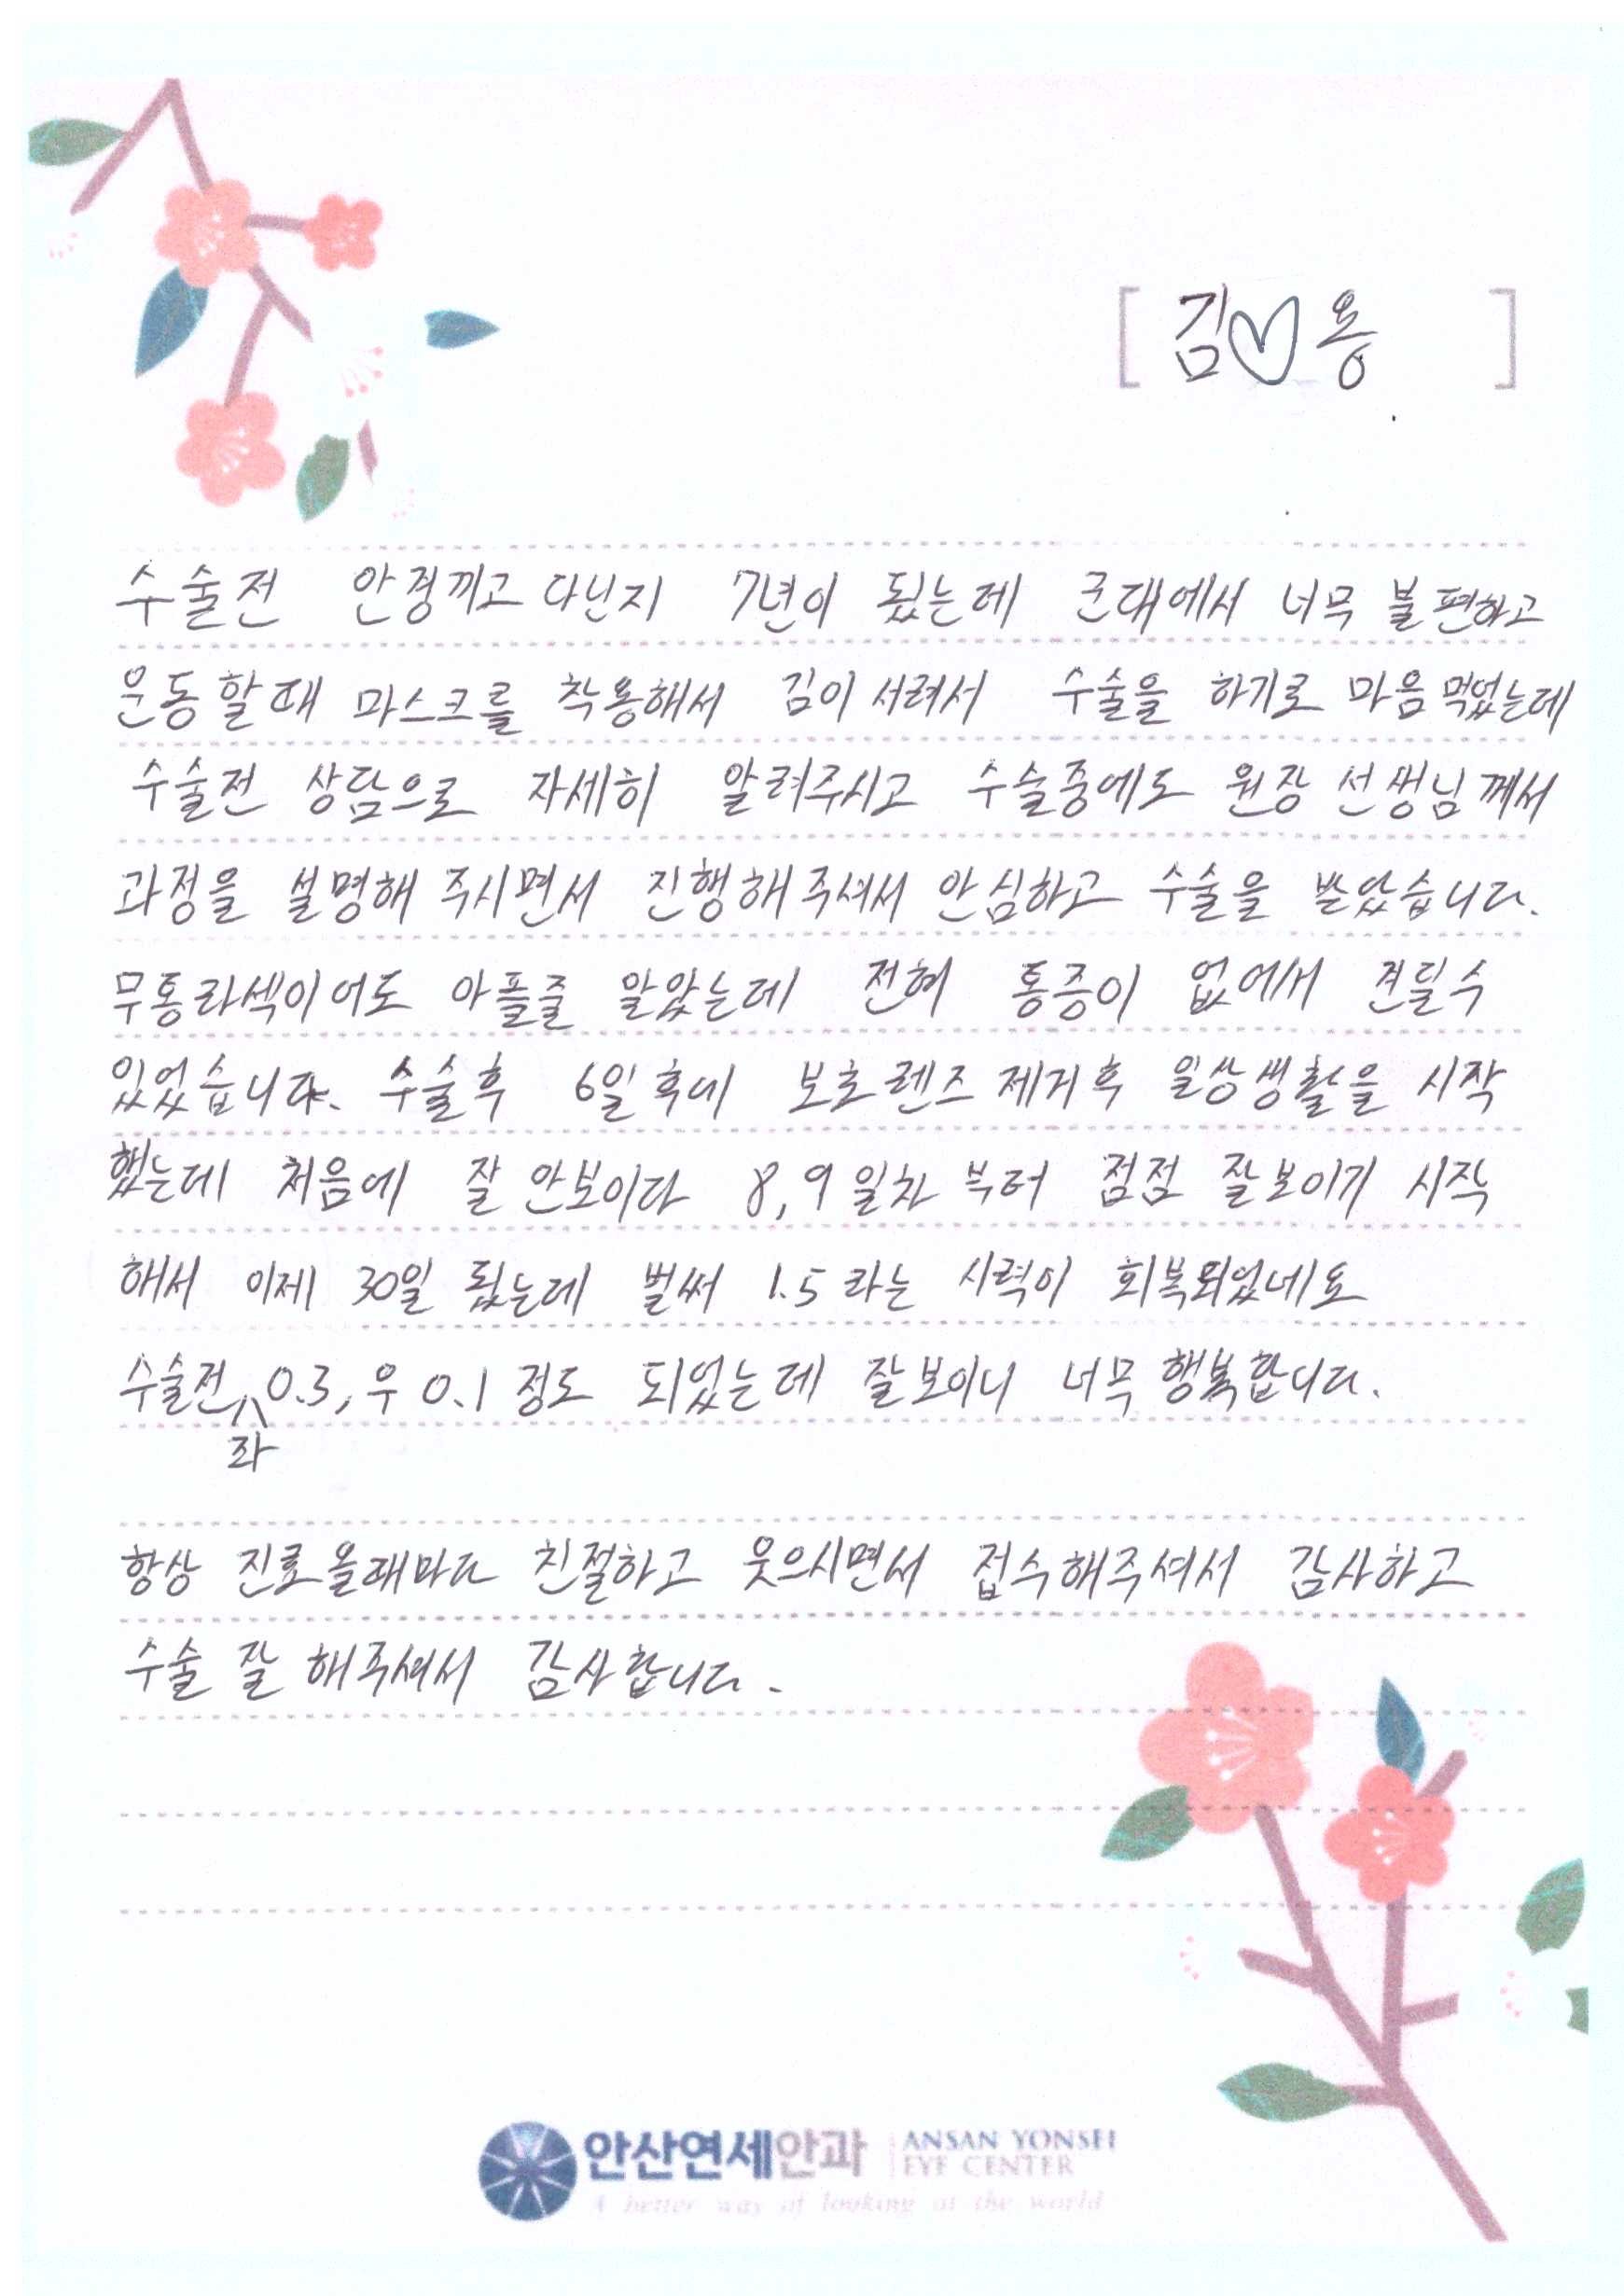 [ 김♡용 ]
수술전 안경끼고 다닌지 7년이 됬는데 군대에서 너무 불편하고
운동할때 마스크를 착용해서 김이 서려서 수술을 하기로 마음먹었는데
수술전 상담으로 자세히 알려주시고 수술중에도 원장 선생님께서
과정을 설명해 주시면서 진행해주셔서 안심하고 수술을 받았습니다.
무통라섹이어도 아플줄 알았는데 전혀 통증이 없어서 견딜수
있었습니다. 수술후 6일후에 보호렌즈 제거후 일상생활을 시작
했는데 처음에 잘 안보이다 8,9일차부터 점점 잘보이기 시작
해서 이제 30일 됬는데 벌써 1.5라는 시력이 회복되었네요
수술전 좌 0.3, 우 0.1 정도 되었는데 잘보이니 너무 행복합니다.
항상 진료올때마다 친절하고 웃으시면서 접수해주셔서 감사하고
수술 잘 해주셔서 감사합니다.
안산연세안과 | ANSAN YONSEI
EYE CENTER
A better way of looking at the world